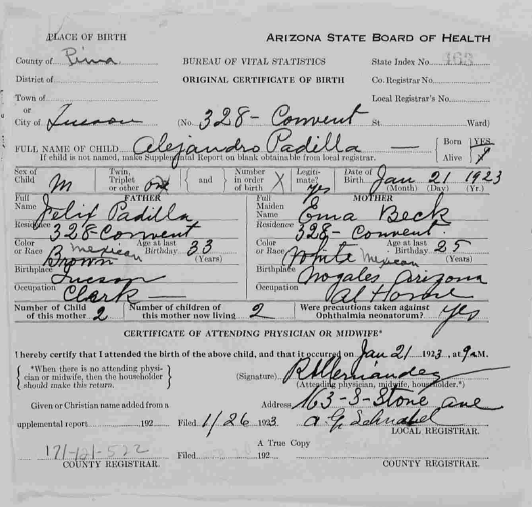 PLACE OF BIRTH ARIZONA STATE BOARD OF HEALTH
County of Pima BUREAU OF VITAL STATISTICS State Index No. 163
District of ORIGINAL CERTIFICATE OF BIRTH Co. Registrar No.
Town of Local Registrar's No.
or
City of Tucson (No. 328- Convent St. Ward)
FULL NAME OF CHILD Alejandro Padilla — Born Alive YES
If child is not named, make Supplemental Report on blank obtainable from local registrar.
Sex of Child M Twin, Triplet or other one and Number in order of birth X Legitimate? Yes Date of Birth Jan 21 1923
(Month) (Day) (Yr.)
FATHER
Full Name Felix Padilla
Residence 328 Convent
Color or Race Mexican Brown Age at last Birthday 33 (Years)
Birthplace Tucson
Occupation Clerk —
MOTHER
Full Maiden Name Ema Beck
Residence 328- Convent.
Color or Race White Mexican Age at last Birthday 25 (Years)
Birthplace Nogales Arizona
Occupation At Home
Number of Child of this mother 2 Number of children of this mother now living 2 Were precautions taken against Ophthalmia neonatorum? Yes
CERTIFICATE OF ATTENDING PHYSICIAN OR MIDWIFE*
I hereby certify that I attended the birth of the above child, and that it occurred on Jan 21 1923, at 9 A.M.
*When there is no attending physician or midwife, then the householder should make this return.
(Signature) Hernandez
(Attending physician, midwife, householder.*)
Given or Christian name added from a Address 163-S-Stone ave
supplemental report 192 Filed 1/26 1923 A G Schnabel
LOCAL REGISTRAR.
A True Copy
171-121-522 Filed 192
COUNTY REGISTRAR. COUNTY REGISTRAR.